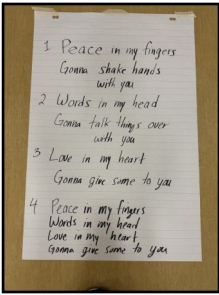 1 Peace in my fingers
Gonna shake hands
with you
2 Words in my head
Gonna talk things over
with you
3 Love in my heart
Gonna give some to you
4 Peace in my fingers
Words in my head
Love in my heart
Gonna give some to you